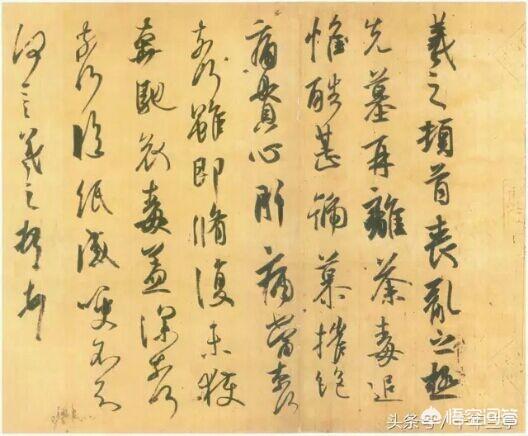 羲之頓首喪亂之極
先墓再離荼毒追
惟酷甚號慕摧絕
痛貫心肝痛當奈何
奈何雖即脩復未獲
奔馳哀毒益深奈何
奈何臨紙感哽不知
何言羲之頓首頓首
悟空问答
头条号